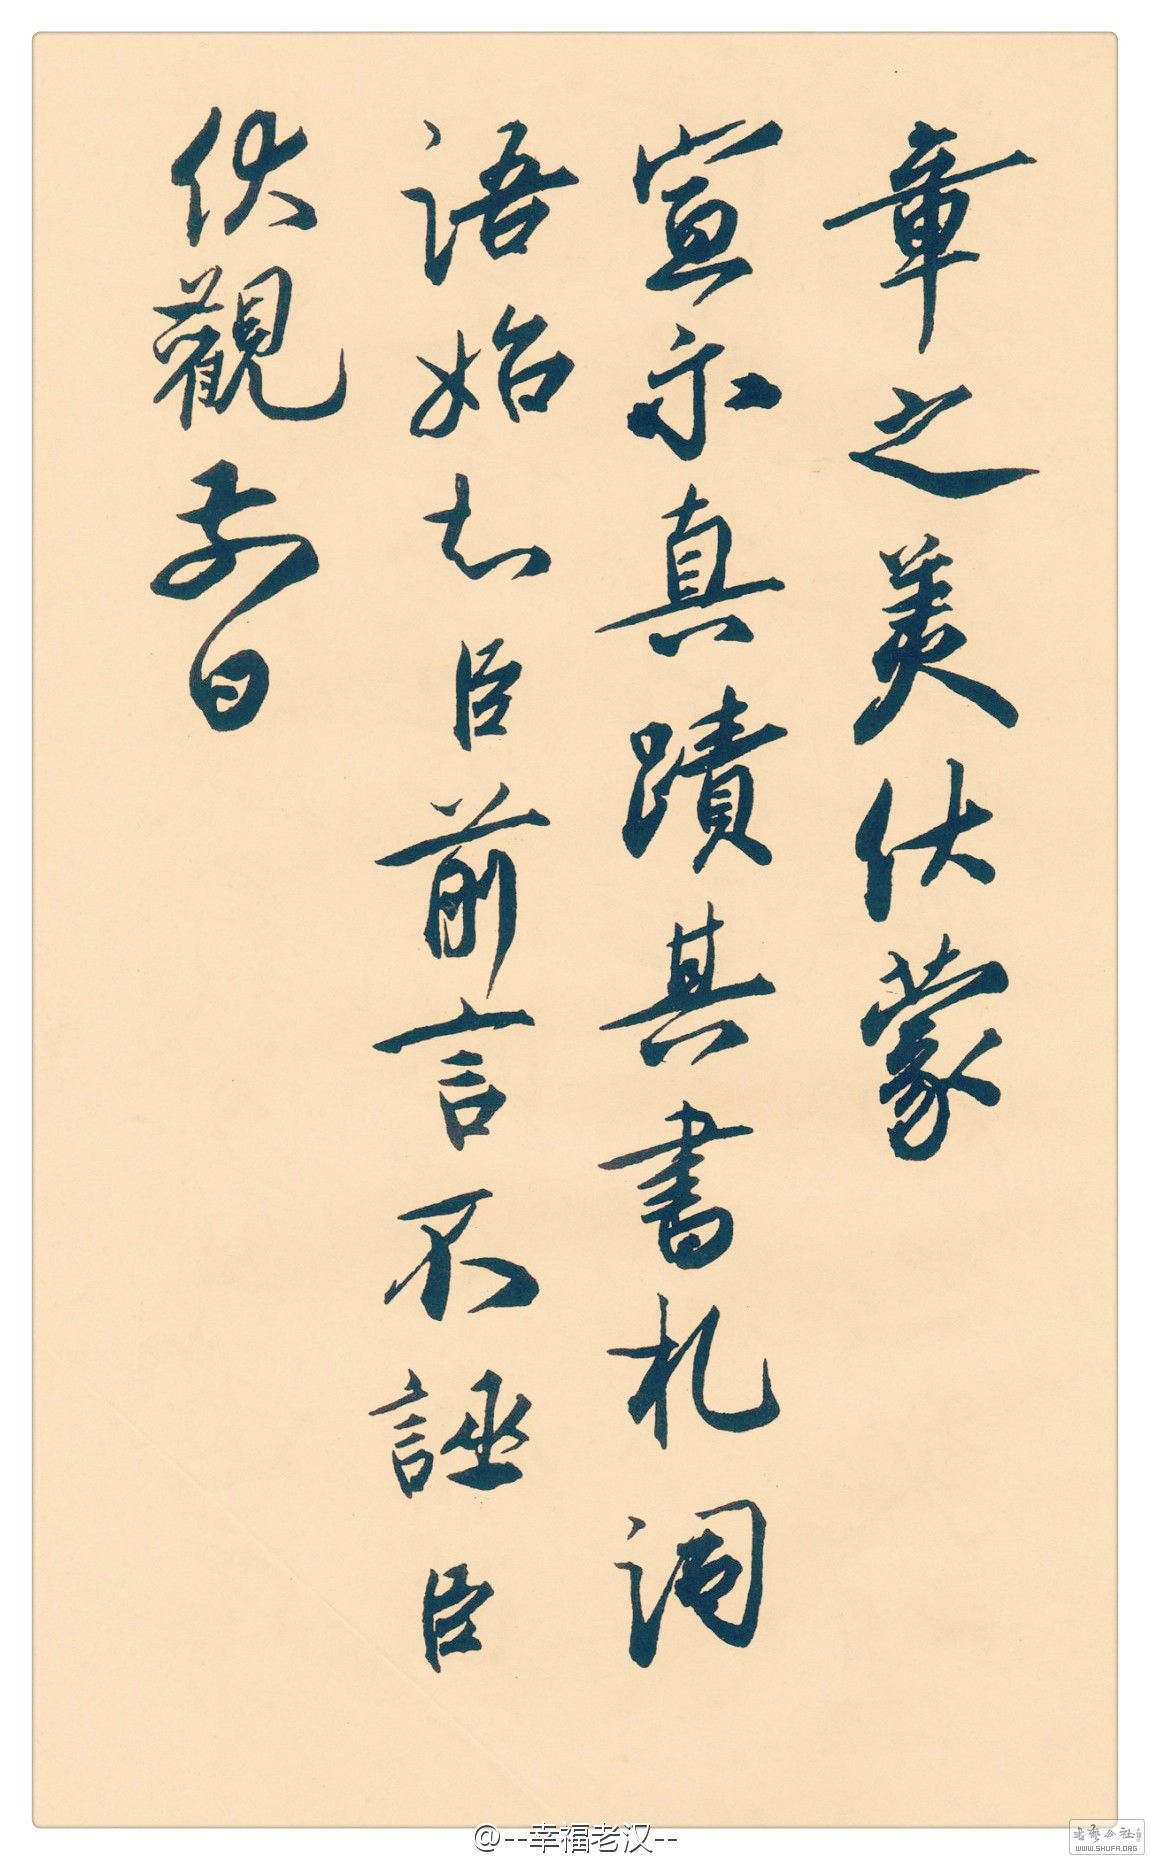 章之美伏蒙
宣示真蹟其書札詞
語始知臣前言不誣臣
伏觀日
@--幸福老汉--
书艺公社
WWW.SHUFA.ORG